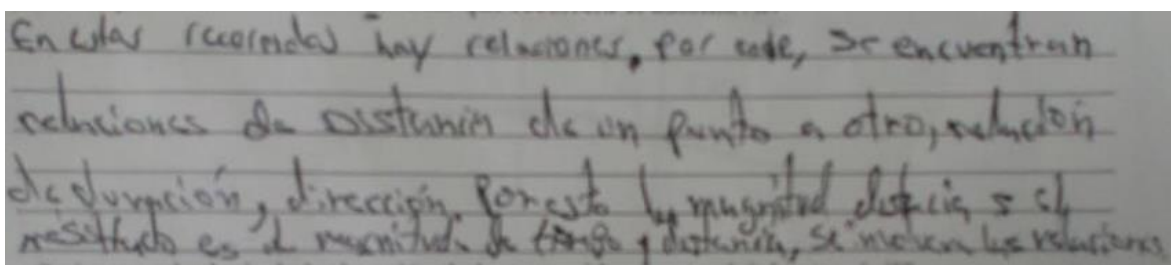 En estas recorridos hay relaciones, por ende, se encuentran
relaciones de Distancia de un punto a otro, relación
de duración, dirección. Por esto la magnitud distancia s el
es d magnitud de tiempo y distancia, se las relaciones